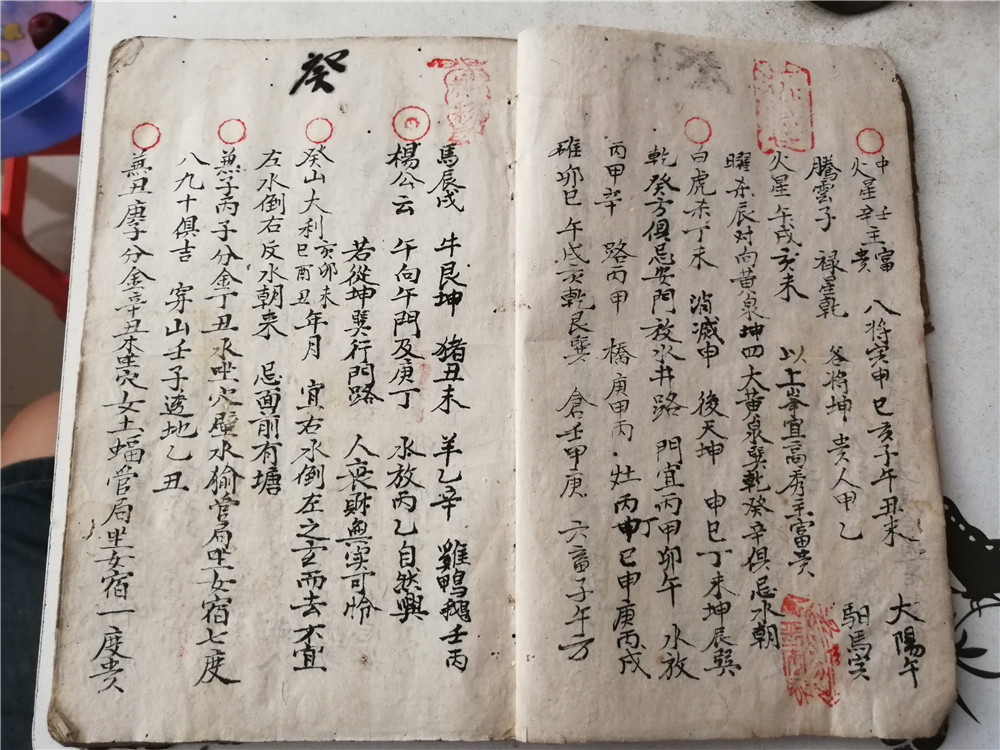 申壬主富 八将寅申巳亥子午丑未 大陽午
火星辛主贵
騰雲子 禄星乾 谷将坤 贵人甲乙 馹馬寅
火星午戌亥未 以上峯宜高秀主富贵
曜杀辰对向黄泉坤四大黄泉巽乾癸辛俱忌水朝
白虎未丁未 消滅申 後天坤 申巳丁未坤辰巽
乾癸方俱忌安門放水井路 門宜丙甲卯午 水放
丙甲辛 路丙甲 橋庚甲丙 灶丙申丁巳申庚丙戌
碓卯巳午戌亥乾艮巽 倉壬甲庚 六畜子午方
癸
馬辰戌 牛艮坤 猪丑未 羊乙辛 雞鴨鵝壬丙
楊公云 午向午門及庚丁 水放丙乙自然興
若從坤巽行門路 人丧財無实可怜
癸山大利亥卯未巳酉丑年月 宜右水倒左之玄而去不宜
左水倒右反水朝来 忌面前有塘
兼子丙子分金丁丑水坐穴壁水㺄管局坐女宿七度
八九十俱吉 穿山壬子透地乙丑
兼丑庚子分金辛丑木坐穴女土蝠管局坐女宿一度贵